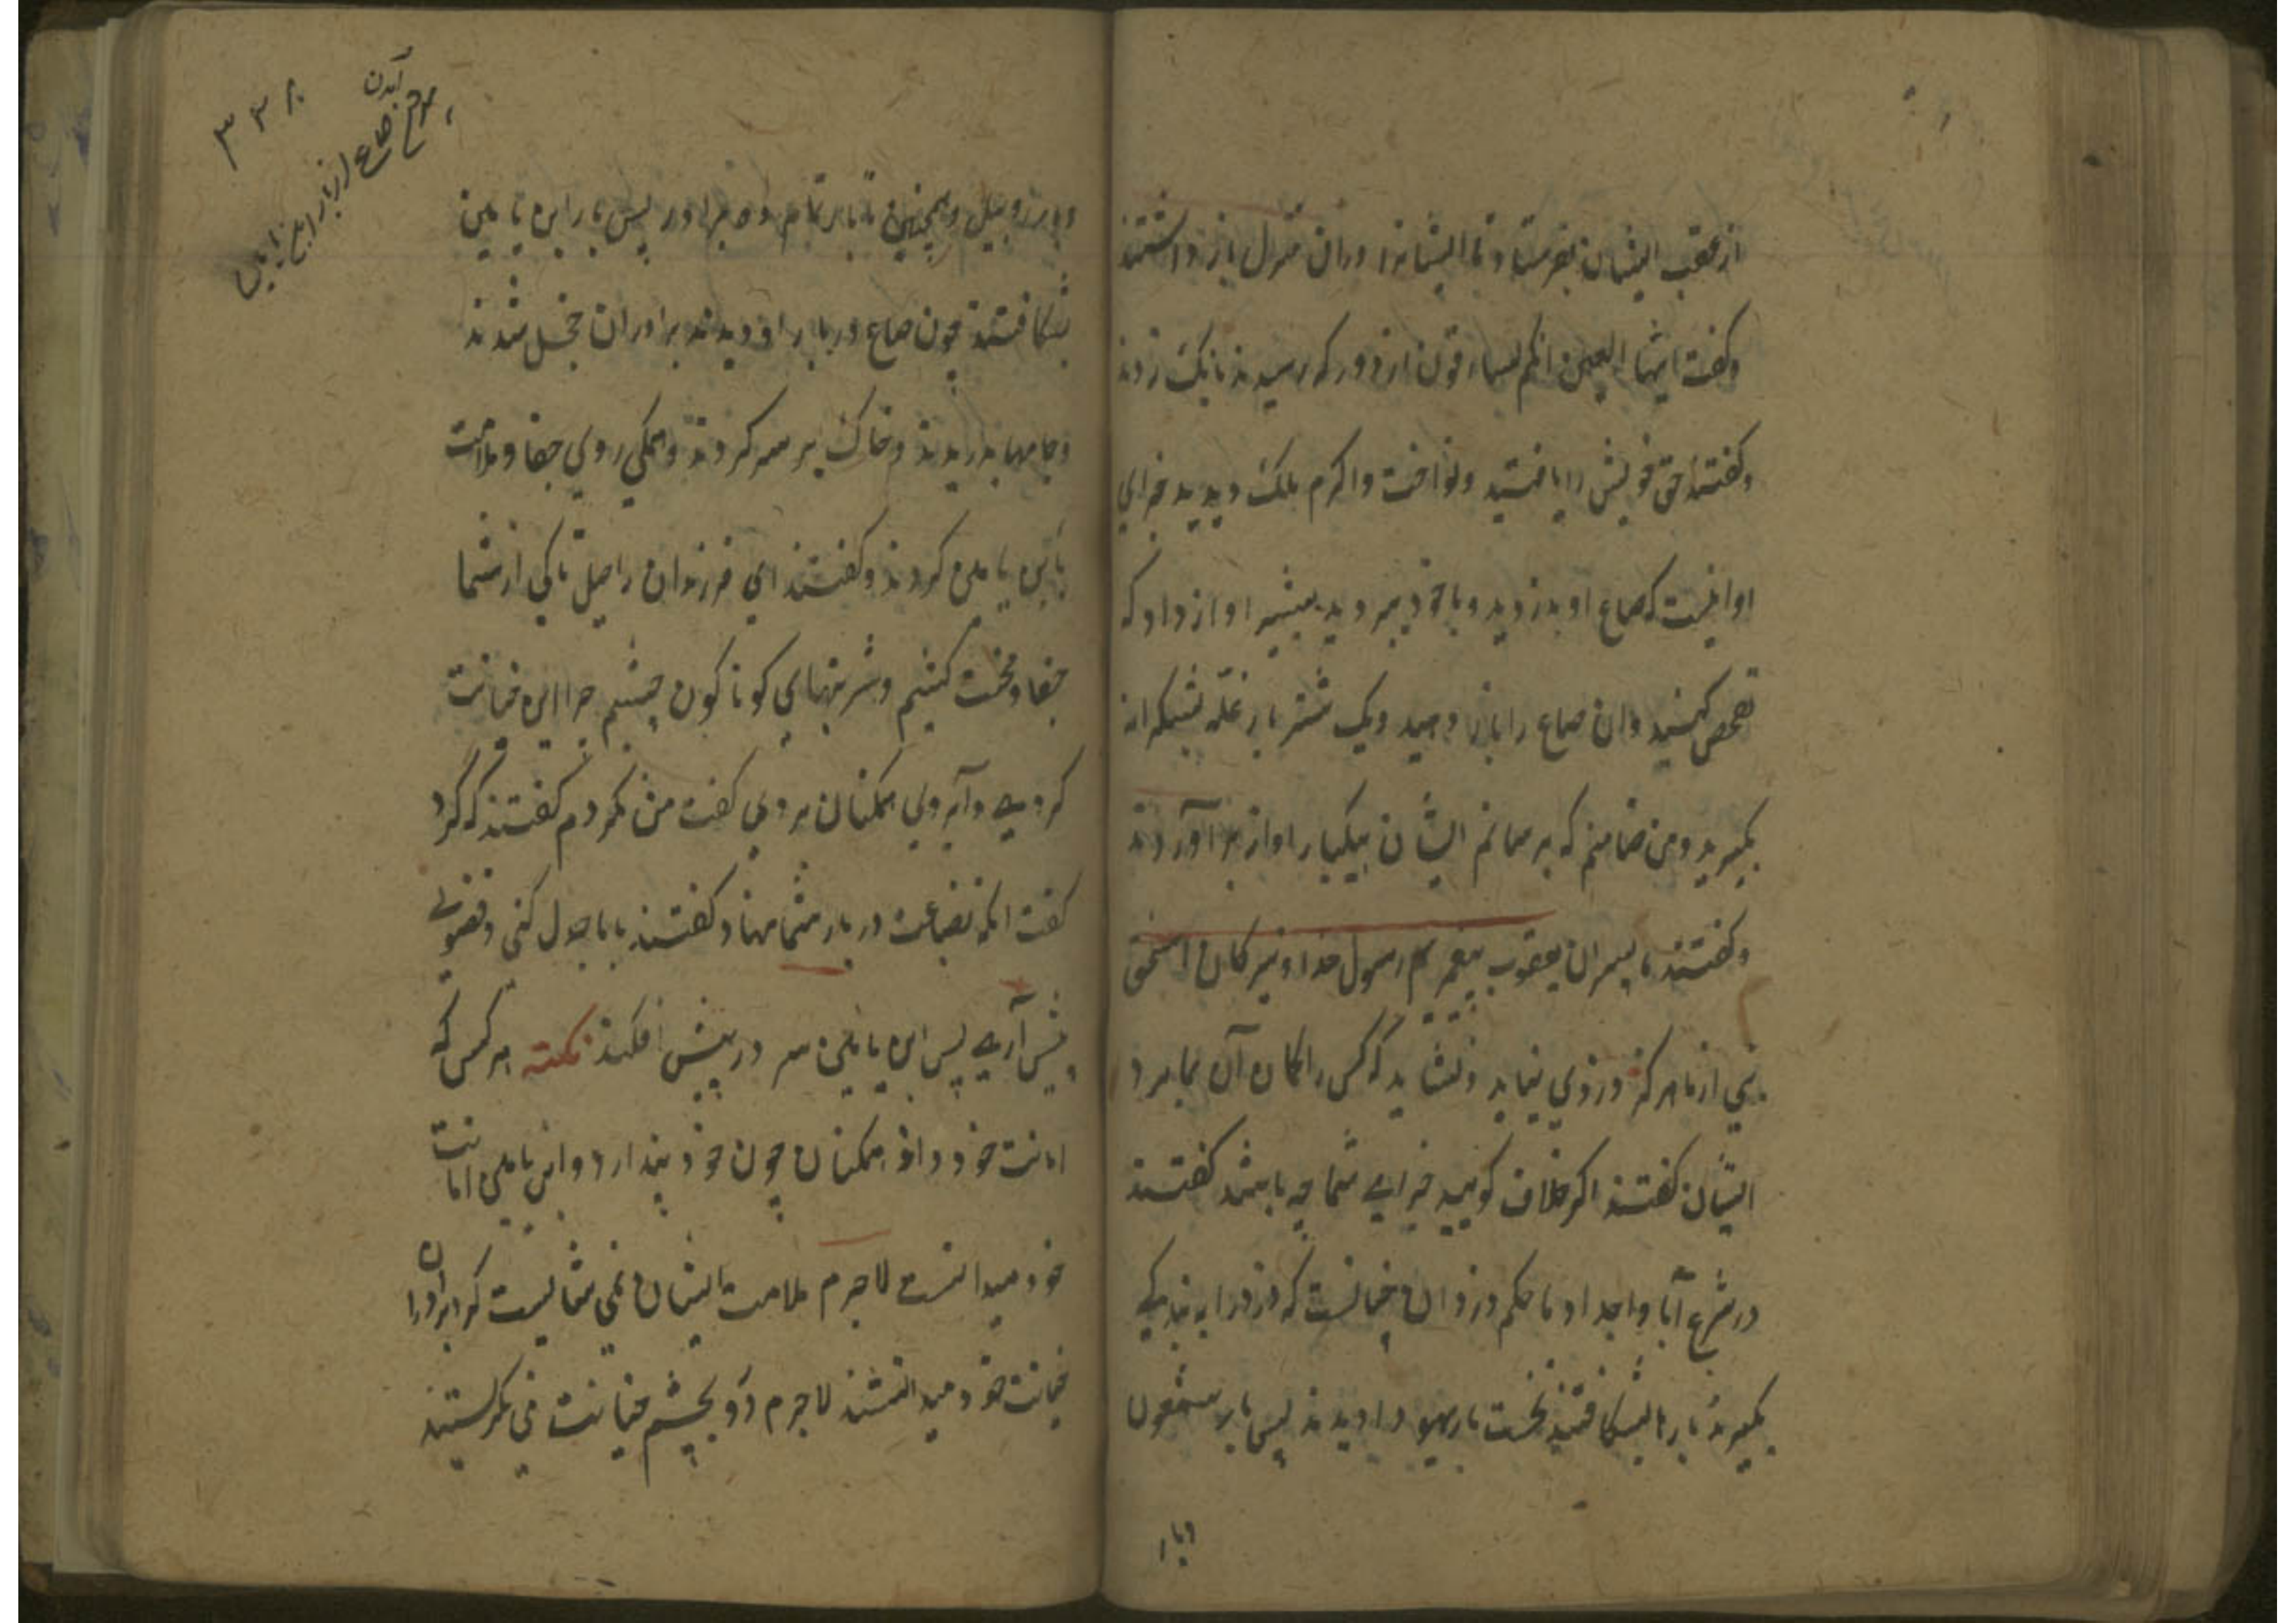 از عقب ایشان بفرستاد تا ایشانرا دران منزل باز داشتند
وکفت ایتها العیر انکم لسارقون از دور که رسیدند بانک زدند
وکفتند حق خویش را یافتید ونواخت واکرم ملک دیدید جزای
او اینست که صاع او بدزدید وبا خود ببردید بشیر اواز داد که
تفحص کنید وان صاع را باز دهید ویک شتر بار غله بشکرانه
بکیرید ومن ضامنم که برسانم ایشان بیکبار اواز برآوردند
وکفتند ما پسران یعقوب پیغمبریم رسول خدا ونبیرکان اسحق
نبی از ما هرکز دزدی نیاید ونشاید که کس را کمان آن بما برد
ایشان کفتند اکر خلاف کویید جزای شما چه باشد کفتند
در شرع آبا واجداد ما حکم دزدان چنانست که دزد را به بندکی
بکیرند بارها بشکافتند نخست بار یهودا دیدند پس بار شمعون
وبار
۳۳۸
بیرون آمدن صاع از بار ابن یامین
وبار روبیل وهمچنین تا بار تمام ده برادر پس بار ابن یامین
بشکافتند چون صاع در بار او دیدند برادران خجل شدند
وجامها بدریدند وخاک بر سر کردند وهمکی روی جفا وملامت
بابن یامین کردند وکفتند ای فرزندان راحیل تا کی از شما
جفا ومحنت کشیم وشربتهای کوناکون چشیم چرا این خیانت
کردی وآبروی همکنان بردی کفت من نکردم کفتند که کرد
کفت انکه بضاعت در بار شما نهاد کفتند با ما جدل کنی وفضولی
پیش آری پس ابن یامین سر در پیش افکند نکته هر کس که
امانت خود داند همکنان چون خود پندارد وابن یامین امانت
خود میدانست لاجرم ملامت ایشان نمی شایست که برادران
خیانت خود میدانستند لاجرم دو بچشم خیانت می نکریستند